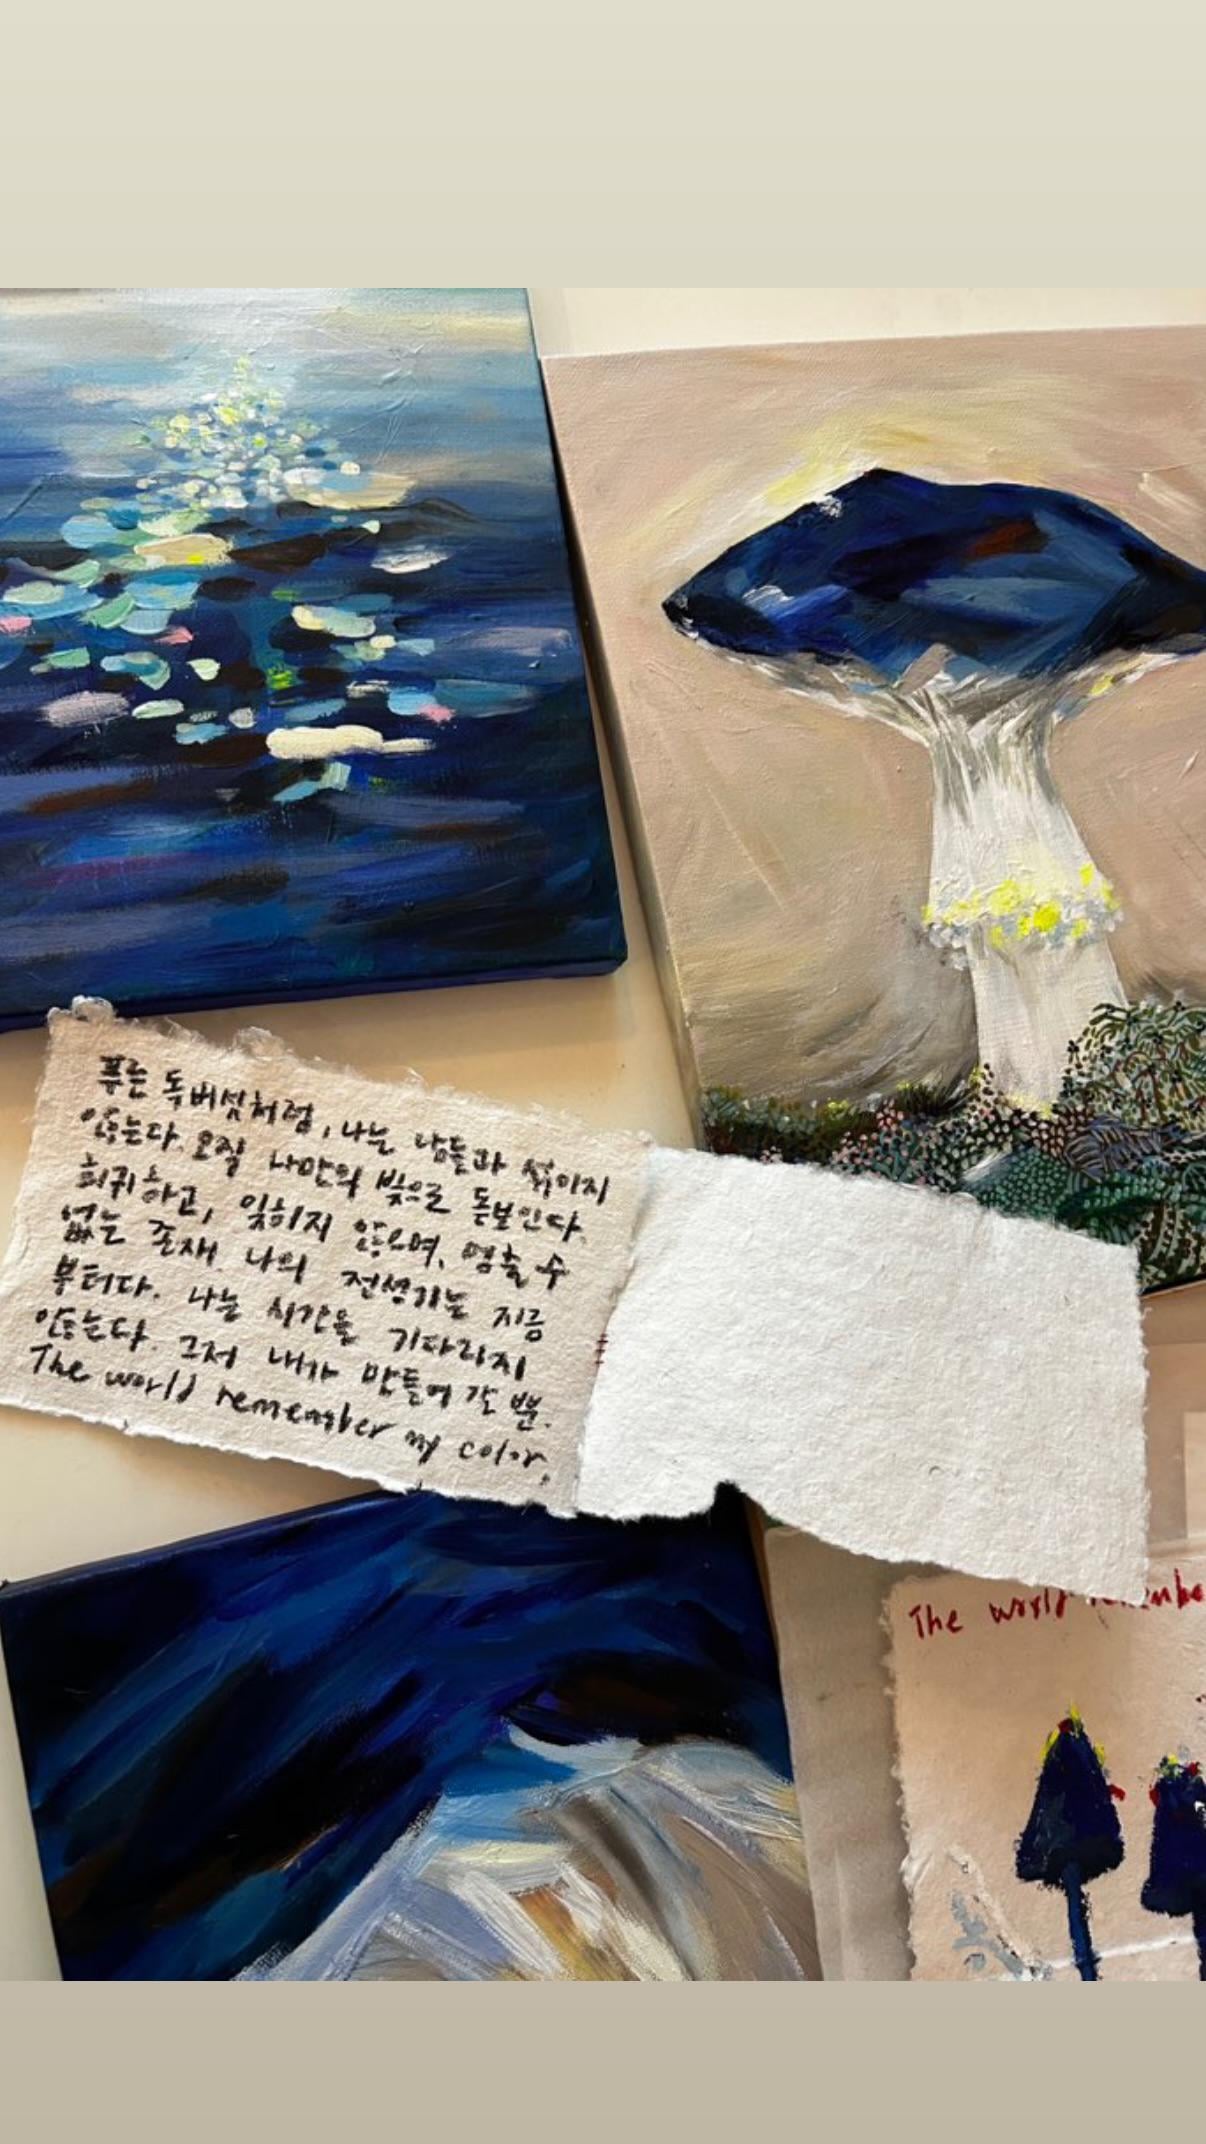 푸른 독버섯처럼, 나는 남들과 섞이지
않는다. 오직 나만의 빛으로 돋보인다.
희귀하고, 잊히지 않으며, 멈출 수
없는 존재. 나의 전성기는 지금
부터다. 나는 시간을 기다리지
않는다. 그저 내가 만들어 갈 뿐.
The world remember my color.
The world remembe